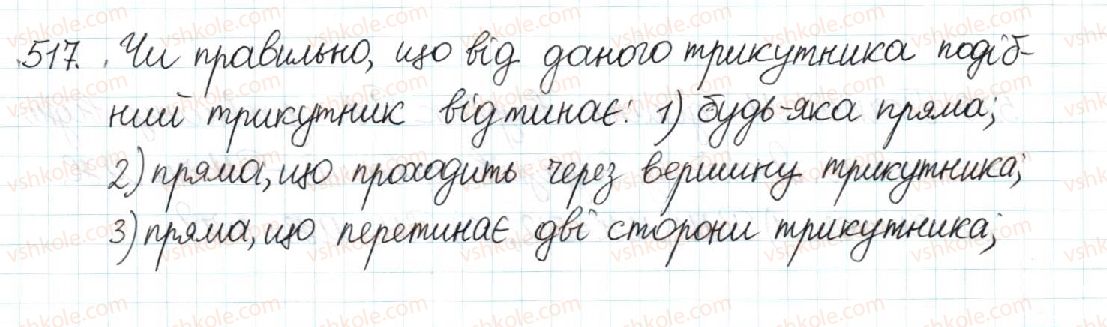 517. Чи правильно, що від даного трикутника подіб-
ний трикутник відтинає: 1) будь-яка пряма;
2) пряма, що проходить через вершину трикутника;
3) пряма, що перетинає дві сторони трикутника;